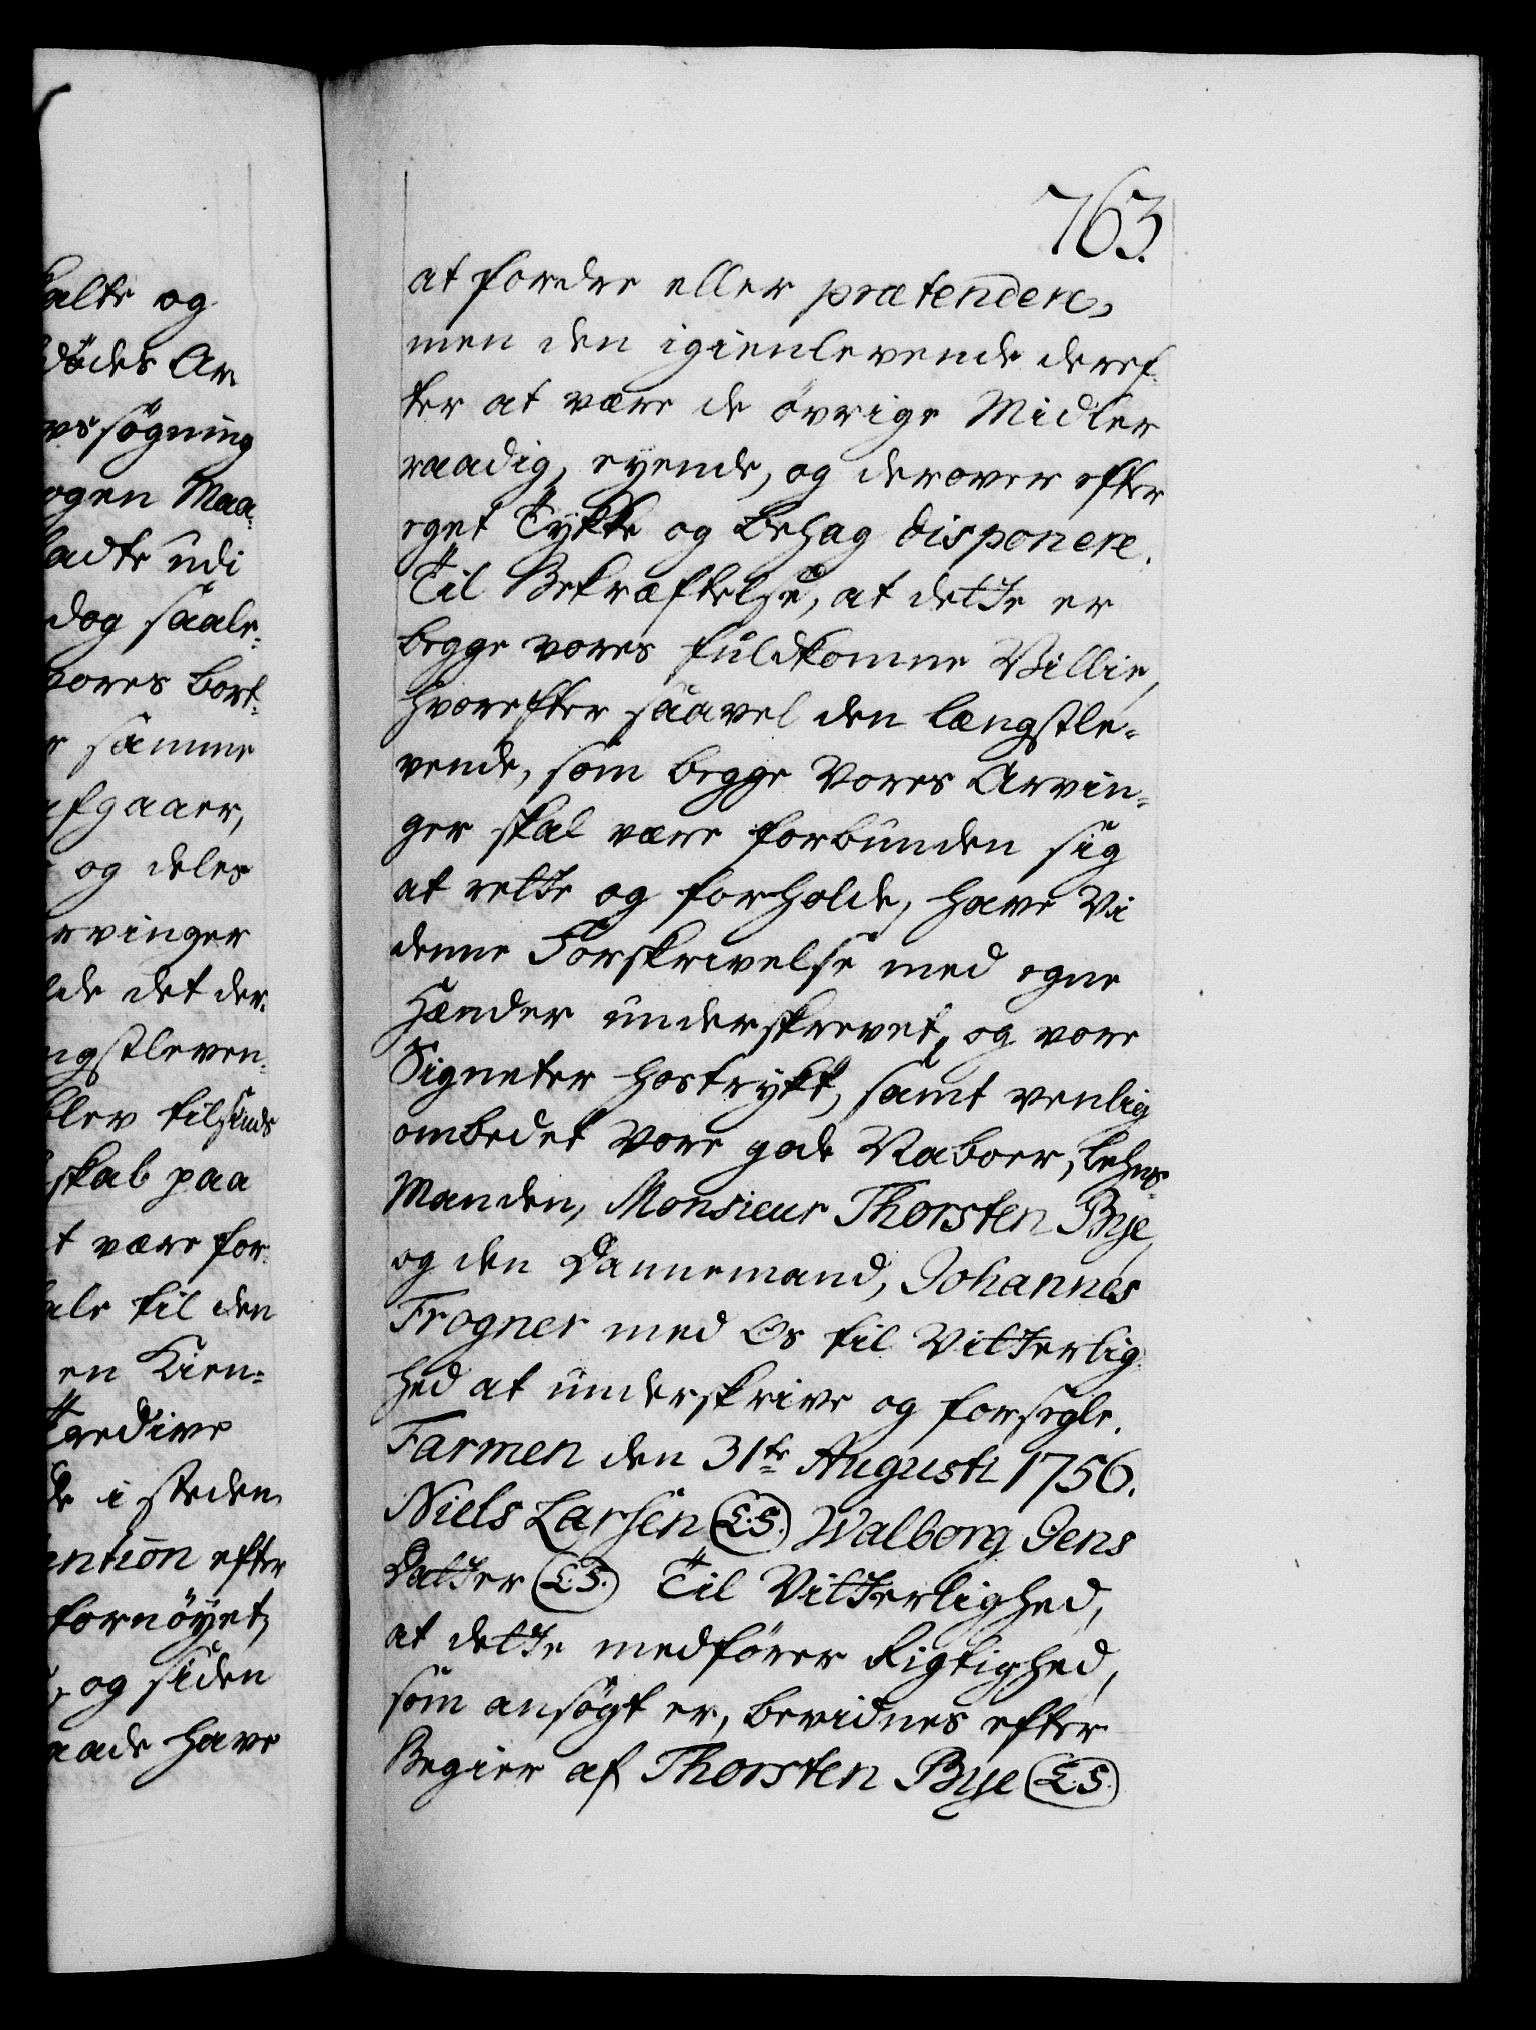 763.
at fordre eller prætendere,
men den igienlevende deref-
ter at være de øvrige Midler
raadig, eyende, og derover efter
eget Tykke og Behag disponere.
Til Bekræftelse, at dette er
begge vores fuldkomne Villie,
hvorefter saavel den længstle-
vende, som begge Vores Arvin-
ger skal være forbunden sig
at rette og forholde, have Vi
denne Forskrivelse med egne
Hænder underskrevet, og vore
Signeter hostrykt, samt venlig
ombedet Vore gode Naboer, Lehns-
Manden, Monsieur Thorsten Bye,
og den Dannemand, Johannes
Frogner med Os til Vitterlig-
hed at underskrive og forsegle.
Farmen den 31te Augusti 1756.
Niels Larsen (L.S.) Walborg Jens
Datter (L.S.) Til Vitterlighed,
at dette medfører Rigtighed,
som ansøgt er, bevidnes efter
Begier af Thorsten Bye (L.S.)
alte og
dødes Ar
vs søgning
ogen Maa-
adte udi
dog saale-
vores bort-
samme
afgaaer,
og deles
rvinger
de det der-
ngstleven-
blev tilsinds
skab paa
t være for-
ale til den
en Kien-
Tredive
de i steden
ention efter
fornøyet,
og siden
aade have